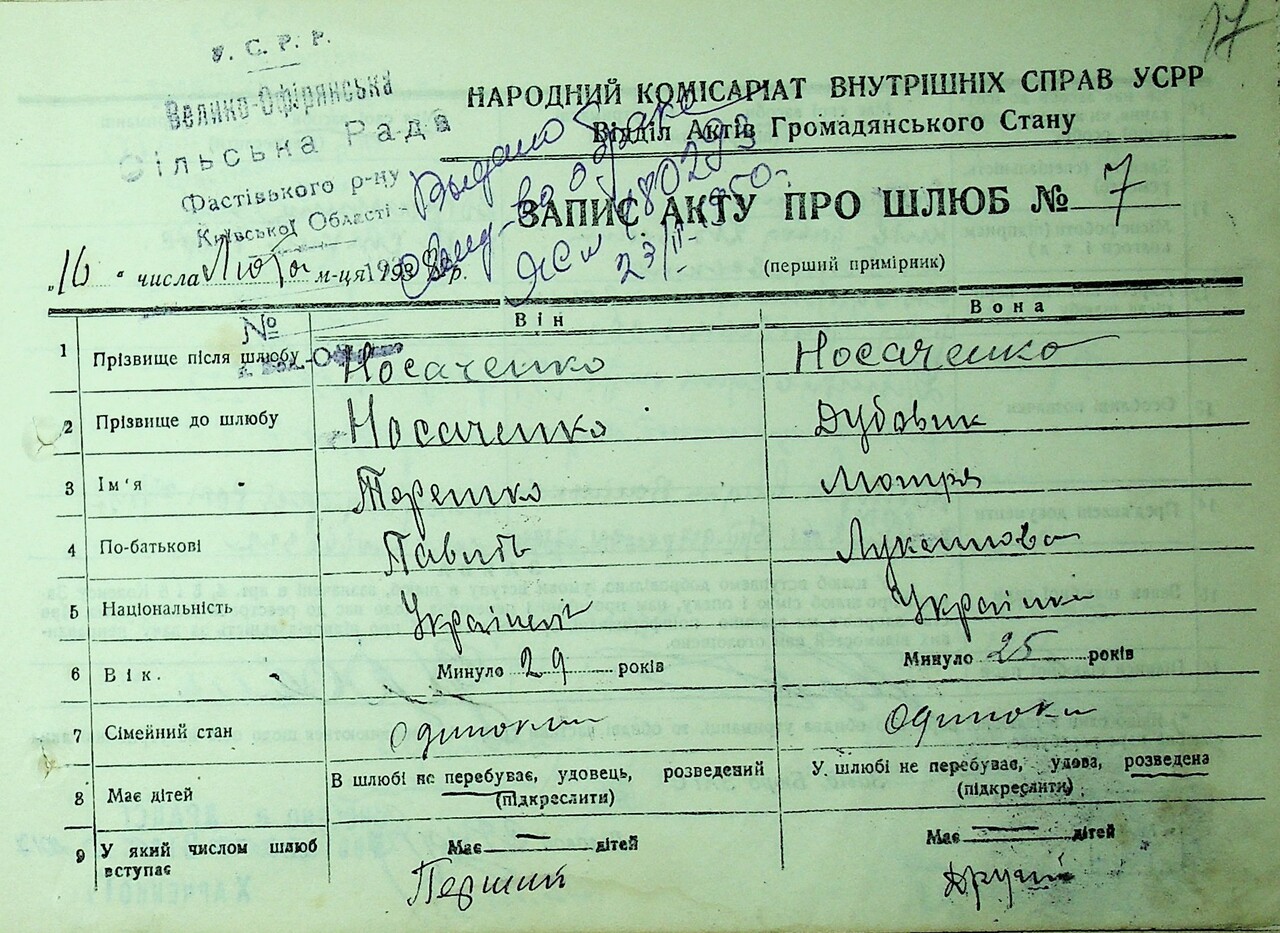 17
У. С. Р. Р.
Велико-Офірянська
Сільська Рада
Фастівського р-ну
Київської Області
НАРОДНИЙ КОМІСАРІАТ ВНУТРІШНІХ СПРАВ УСРР
Відділ Актів Громадянського Стану
Выдано
о браке
23/II-1950.
ЗАПИС АКТУ ПРО ШЛЮБ № 7
(перший примірник)
„16 " числа Лютого м-ця 193 р.
№
Він Вона
1 Прізвище після шлюбу Носаченко Носаченко
2 Прізвище до шлюбу Носаченко Дубовик
3 Ім'я Терешко Мотря
4 По-батькові Павлов Лукашова
5 Національність Українець Українка
6 Вік. Минуло 29 років Минуло 25 років
7 Сімейний стан Одинокий Одинока
В шлюбі не перебуває, удовець, розведений У шлюбі не перебуває, удова, розведена
(підкреслити) (підкреслити)
8 Має дітей Має — дітей Має — дітей
9 У який числом шлюб вступає Перший Другий